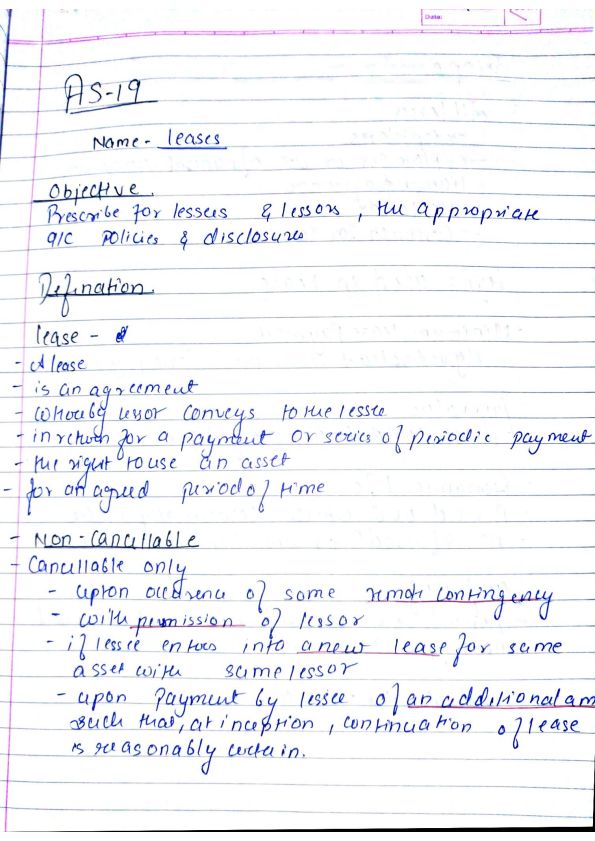 Date:
AS-19
Name - leases
Objective.
Prescribe for lessees & lessors, the appropriate
a/c policies & disclosures
Defination.
lease -
- A lease
- is an agreement
- whereby lessor conveys to the lessee
- in return for a payment or series of periodic payment
- the right to use an asset
- for an agreed period of time
- Non-Cancellable
- Cancellable only
- upton occurence of some remote contingency
- with permission of lessor
- if lessee enters into a new lease for same
asset with same lessor
- upon payment by lessee of an additional am
such that, at inception, continuation of lease
is reasonably certain.